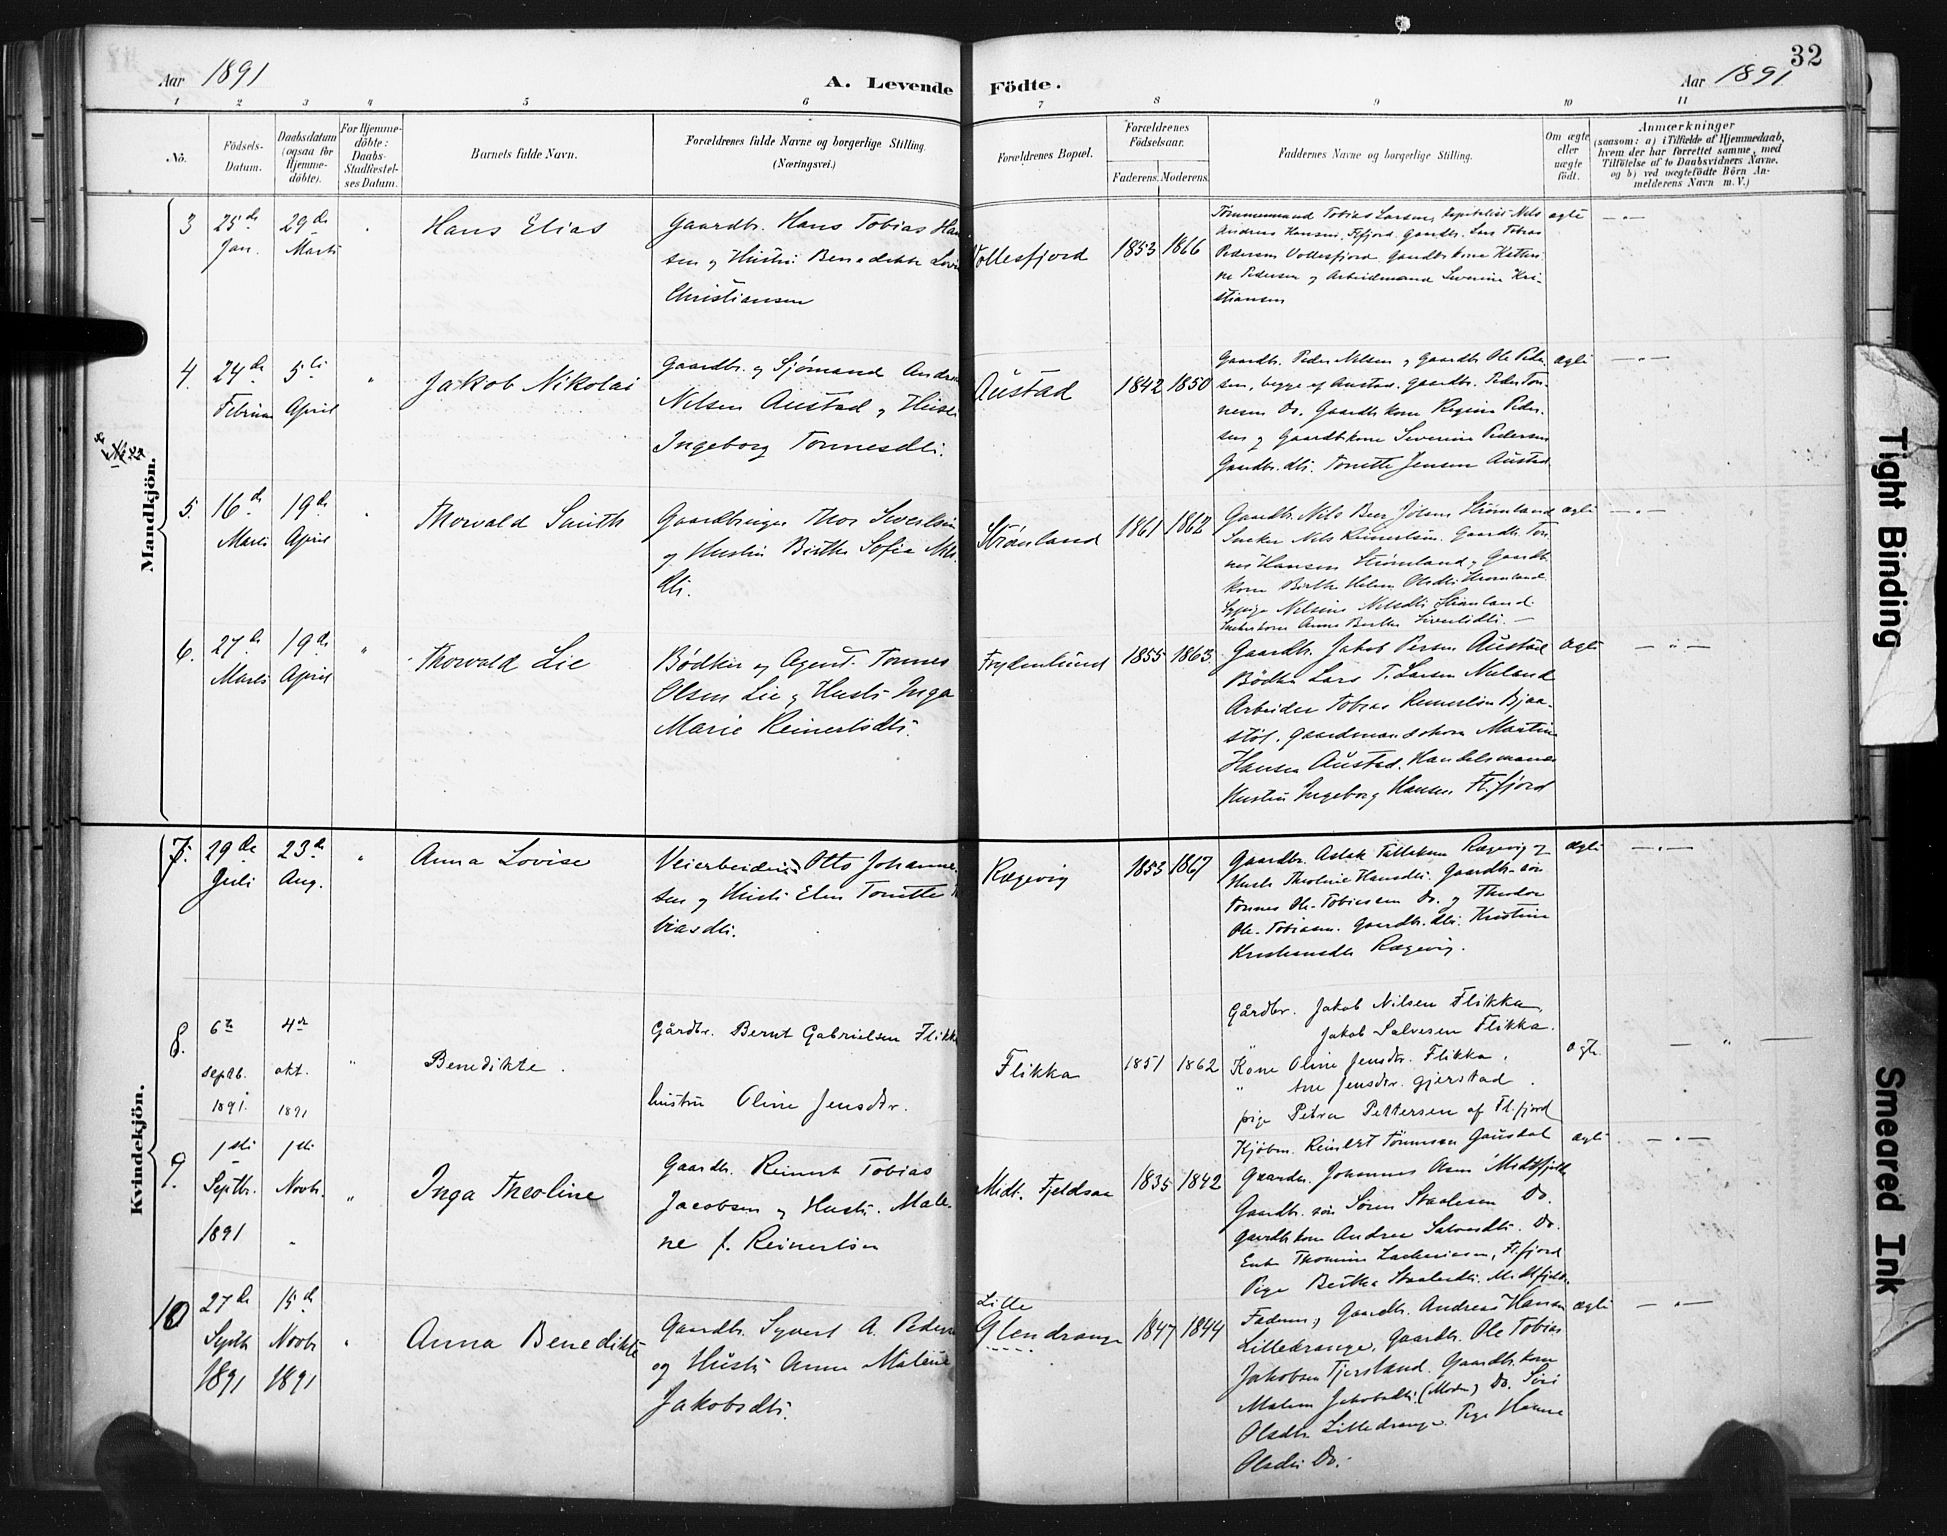 32
Aar 1891
A. Levende Födte.
Aar 1891
1 2 3 4 5 6 7 8 9 10 11
No.
Födsels-Datum.
Daabsdatum (ogsaa for Hjemme-döbte).
For Hjemme-döbte: Daabs-Stadfæstel-ses Datum.
Barnets fulde Navn.
Forældrenes fulde Navne og borgerlige Stilling. (Næringsvei.)
Forældrenes Bopæl.
Forældrenes Födselsaar.
Faderens. Moderens.
Faddernes Navne og borgerlige Stilling.
Om ægte eller uægte födt.
Anmærkninger
(saasom: a) i Tilfælde af Hjemmedaab,
hvem der har forrettet samme, med
Tilföielse af to Daabsvidners Navne.
og b) ved uægtefödte Börn An-
melderens Navn m. V.)
Mandkjön.
3
25de
Jan.
29de
Marts
Hans Elias
Gaardbr. Hans Tobias Han
sen og Hustru Benedikte Lovi
Christiansen
Vollesfjord
1853 1866
Tømmermand Tobias Larsen, Nils
Andreas Hansen, Flfjord, Gaardbr. Lars Tobias
Pedersen Vollesfjord, Gaardbrkone Kathri-
ne Pedersen og Arbeidmand Severine Kri-
stiansen
ægte
4.
24de
Februar
5te
April
Jakob Nikolai
Gaardbr. og Sjømand Andreas
Nilsen Austad og Hustru
Ingeborg Tonnesdtr.
Austad
1842 1850
Gaardbr. Peder Nilsen og Gaardbr Ole Peder-
sen, begge af Austad. Gaardbr. Peder Ton-
nesen Do. Gaardbrkone Regine Peder-
sen og Gaardbrkone Severine Pedersen
Gaardbr.dtr. Tonette Jensen Austad.
ægte
5.
16de
Marts
19de
April
Thorvald Smith
Gaardbruger Thor Sivertsen
og Hustru Birthe Sofie Nils
dtr.
Strømland
1861 1862
Gaardbr. Nils Beer Strømland
Snekker Nils Reinertsen. Gaardbr. Ton
nes Hansen Strømland, Gaardbr
kone Birthe Helene Olsdtr Strømland
Sypige Nilsine Nilsdtr Strømland
Snekkerkone Anne Berthe Sivertsdtr.
ægte
6.
27de
Marts
19de
April
Thorvald Lie
Bødker og Agent. Tonnes
Olsen Lie og Hustr. Inga
Marie Reinertsdtr.
Frydenlund
1855 1863
Gaardbr. Jakob Persen Austad
Bødker Lars T. Larsen Nuland
Arbeider Tobias Reinertsen Bjaa-
støl. Gaardmandskone Martine
Hansen Austad. Handelsmands
Hustru Ingeborg Hansen Flfjord
ægte
Kvindekjön.
7.
29de
Juli
23de
Aug.
Anna Lovise
Veiarbeider Otto Johanne
sen og Hustr. Elen Tonette To
biasdtr.
Rægevig
1853 1867
Gaardbr. Aslak Tallaksen Rægevig og
Hustr Theoline Hansdtr. Gaardbr.søn
Tonnes Ole Tobiassen Do. og Theodor
Ole Tobiasen. Gaardbr.dtr. Kristine
Kristiansdtr Rægevig.
ægte
8.
6te
septb.
1891.
4de
okt.
1891
Benedikte.
Gårdbr. Bernt Gabrielsen Flikka
hustru Oline Jensdtr.
Flikka
1851 1862
Gårdbr. Jakob Nilsen Flikka,
" Jakob Salvesen Flikka.
Kone Oline Jensdtr. Flikka.
" Ane Jensdtr. Gjerstad.
pige Petra Pettersen af Flfjord
ægte.
9.
1ste
Septbr.
1891
1ste
Novbr.
"
Inga Theoline
Gaardbr. Reinert Tobias
Jacobsen og Hustr. Male-
ne f. Reinertsen
Midt. Fjeldsaa
1835 1842
Kjøbm. Reinert Tønnesen Gausdal
Gaardbr. Johannes Aasen Midtfjeld
Gaardbr. søn Søren Staalesen Do.
Gaardbrkone Andrea Salvesdtr. Do.
Enke Thomine Zachariasen, Flfjord
Pige Bertha Staalesdtr. Midtfjeld.
ægte
10
27de
Septb
1891
15de
Novbr
1891
Anna Benedikte
Gaardbr. Syvert A. Peders
og Hustr Anna Malene
Jakobsdtr.
Lille
Glendrange
1847 1844
Faderen, Gaardbr. Andreas Hansen
Lilledrange, Gaardbr. Ole Tobias
Jakobsen Tjersland. Gaardbr. kone
Malene Jakobsdtr. (Moder) Do. Siri
Olsdtr. Lilledrange. Pige Hanne
Olsdtr Do.
ægte
Tight Binding
Smeared Ink